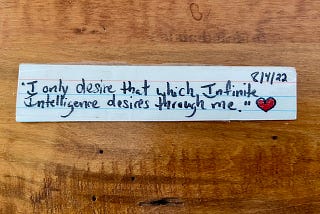 8/4/22
"I only desire that which Infinite
Intelligence desires through me."